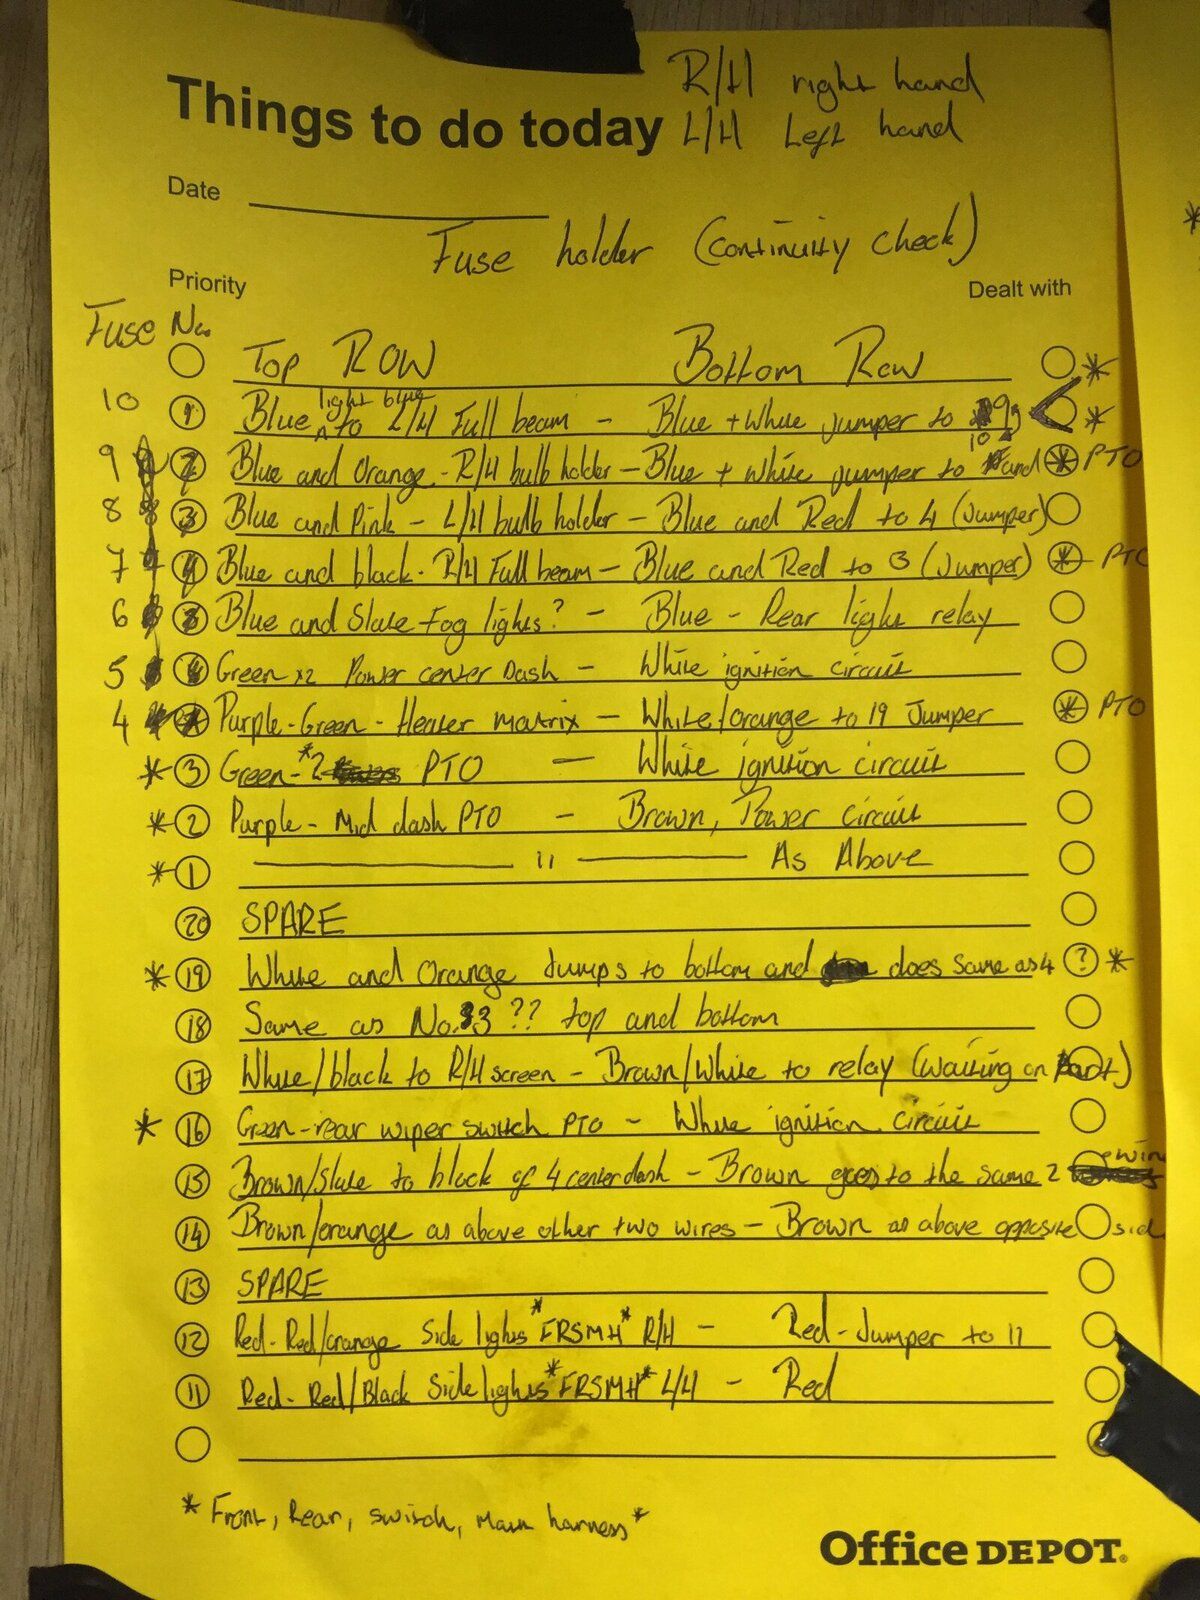 R/H right hand
Things to do today L/H Left hand
Date
Fuse holder (continuity check)
Priority Dealt with
Fuse No.
Top ROW Bottom Row *
10 Blue light blue to L/H Full beam - Blue + White jumper to 9 *
9 Blue and Orange - R/H bulb holder - Blue + White jumper to 10 and * PTO
8 Blue and Pink - L/H bulb holder - Blue and Red to 4 (Jumper)
7 Blue and black - R/H Full beam - Blue and Red to 3 (Jumper) * PTO
6 Blue and Slate Fog lights? - Blue - Rear light relay
5 Green x2 Power center Dash - White ignition circuit
4 Purple-Green - Heater matrix - White/orange to 19 Jumper * PTO
* 3 Green - *2 PTO - White ignition circuit
* 2 Purple - Mid dash PTO - Brown, Power circuit
* 1 ——— 11 ——— As Above
20 SPARE
* 19 White and Orange Jumps to bottom and does same as 4 ? *
18 Same as No. 3 ?? top and bottom
17 White/black to R/H screen - Brown/White to relay (waiting on Part)
* 16 Green-rear wiper switch PTO - White ignition circuit
15 Brown/Slate to block of 4 center dash - Brown goes to the same 2
14 Brown/orange as above other two wires - Brown as above opposite
13 SPARE
12 Red-Red/orange Side lights *FRSMH* R/H - Red - Jumper to 11
11 Red-Red/Black Side lights *FRSMH* L/H - Red
* Front, Rear, switch, Main harness *
Office DEPOT.